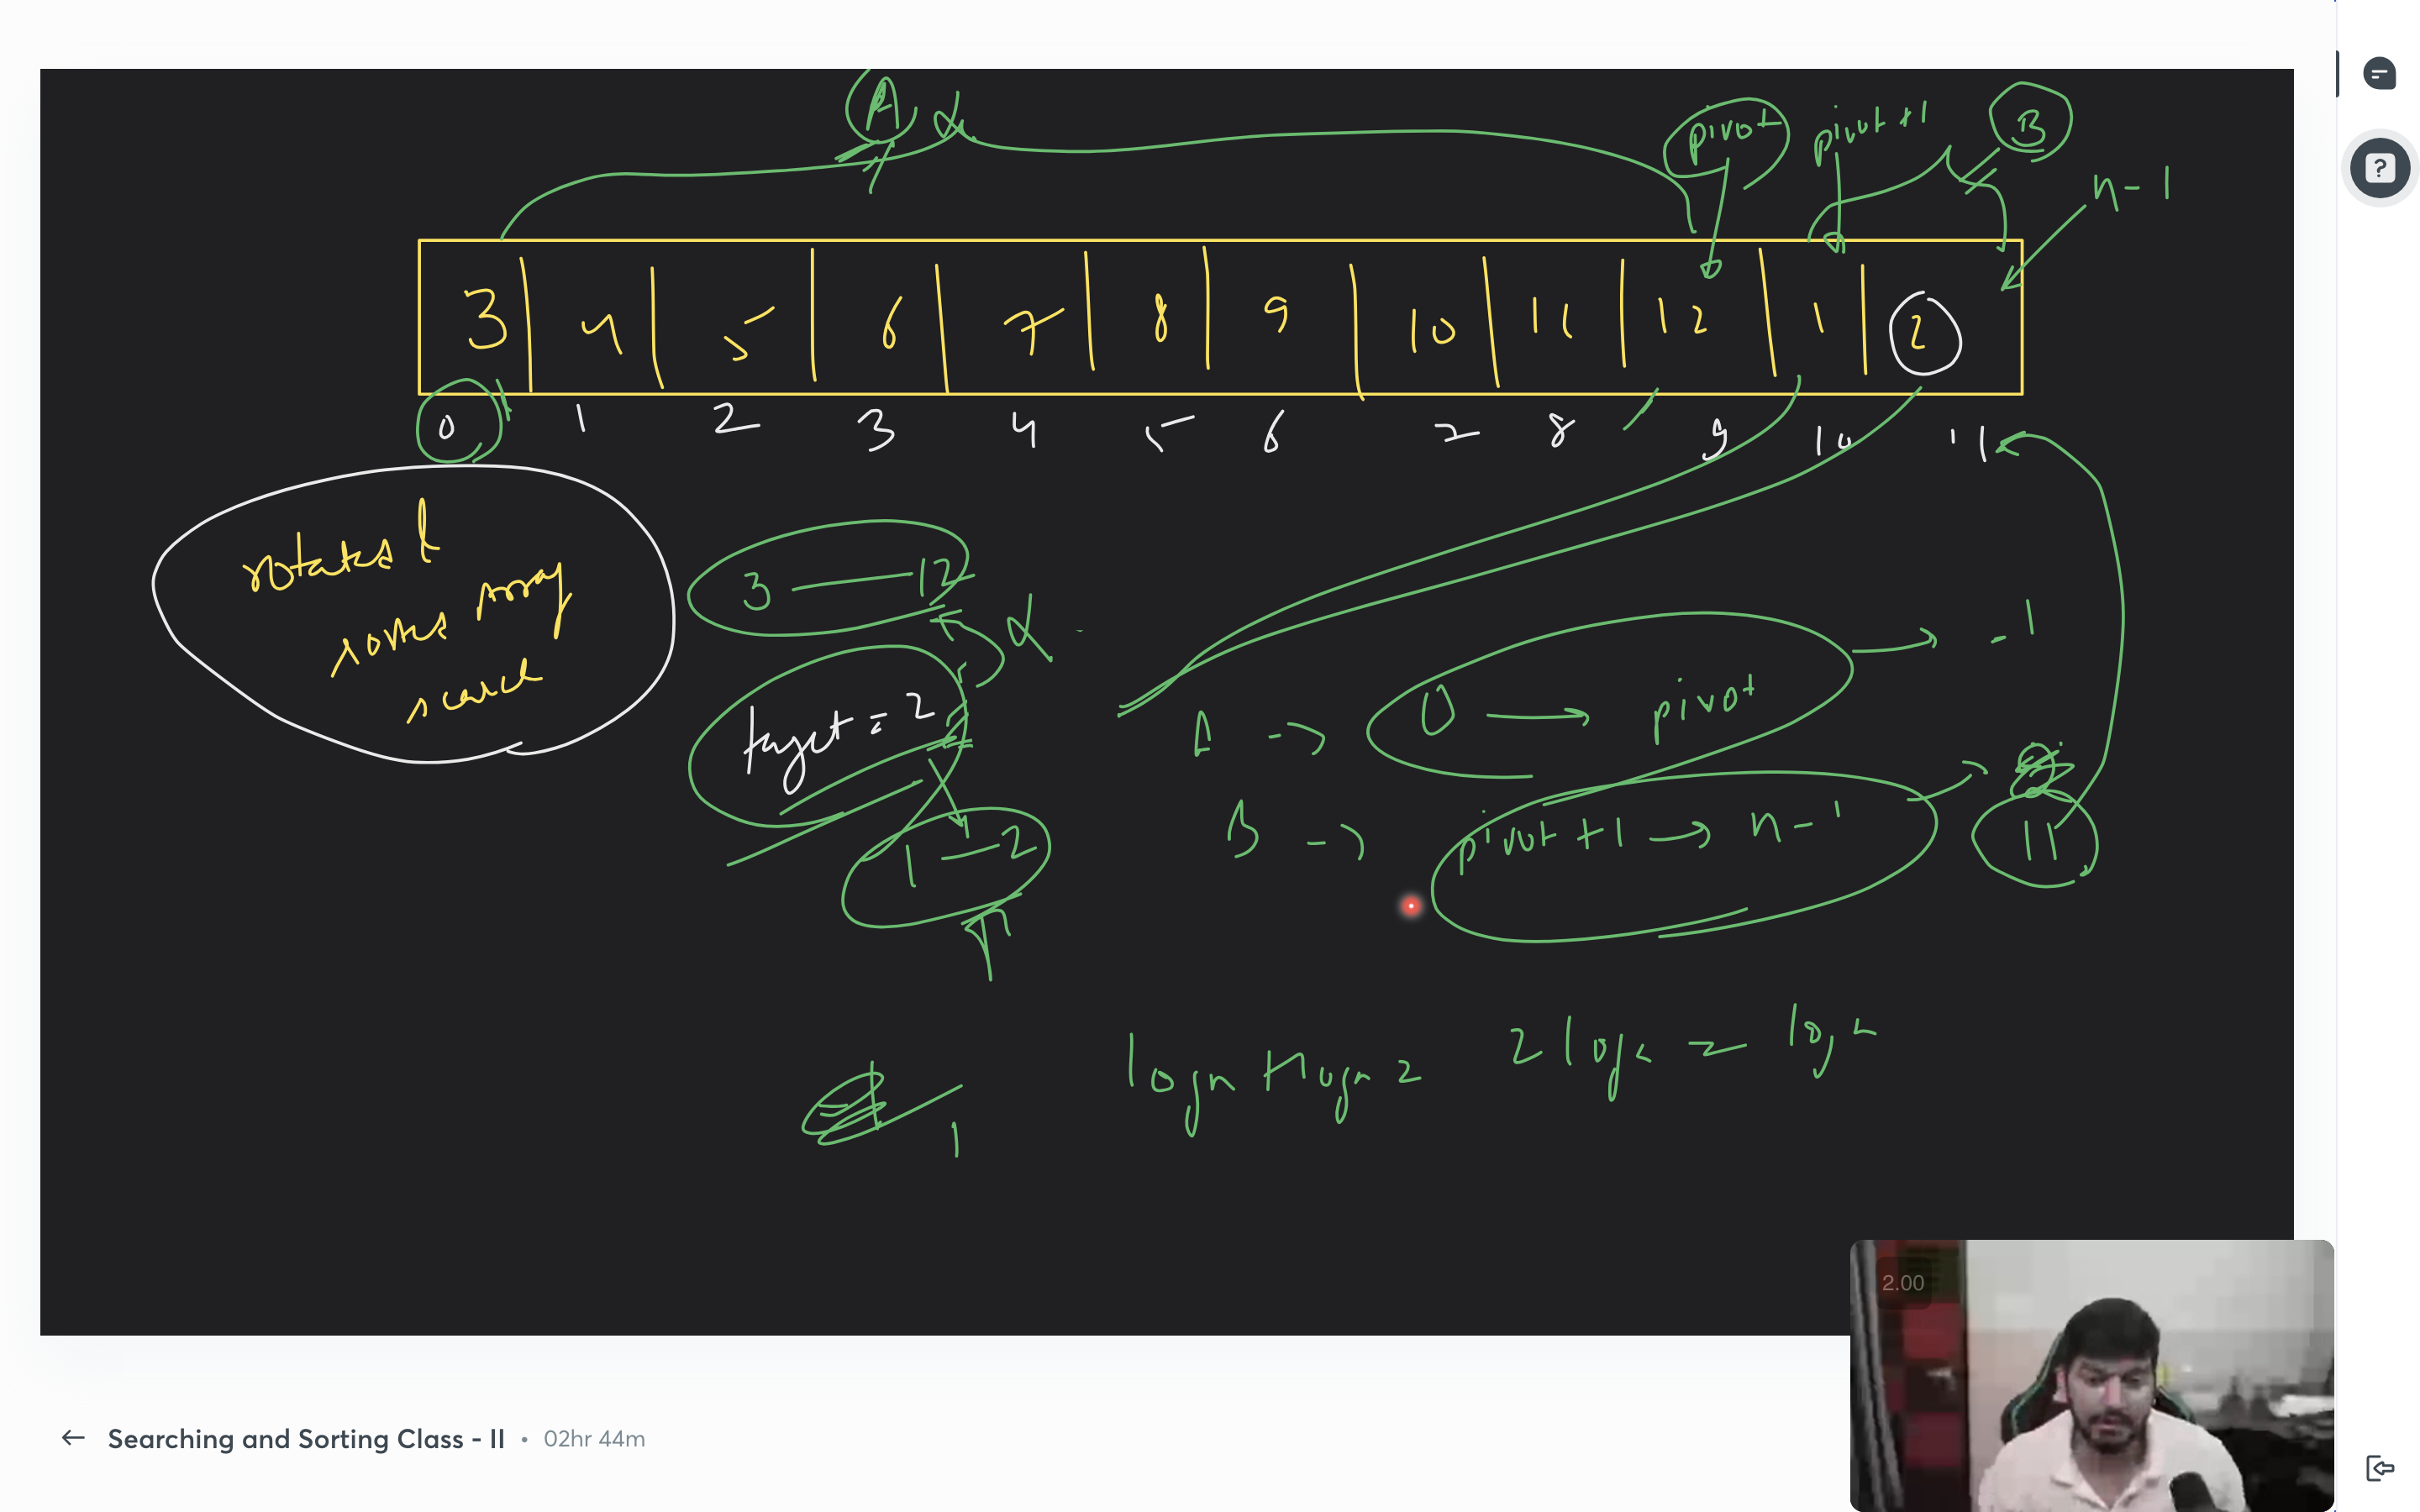 A
pivot
pivot +1
B
n-1
3 4 5 6 7 8 9 10 11 12 1 2
0 1 2 3 4 5 6 7 8 9 10 11
rotated
sorted array
search
3 — 12
target = 2
1 — 2
A → 0 → pivot → -1
B → pivot +1 → n-1 → 11
logn + logn = 2 logn = logn
1
2.00
Searching and Sorting Class - II • 02hr 44m
?